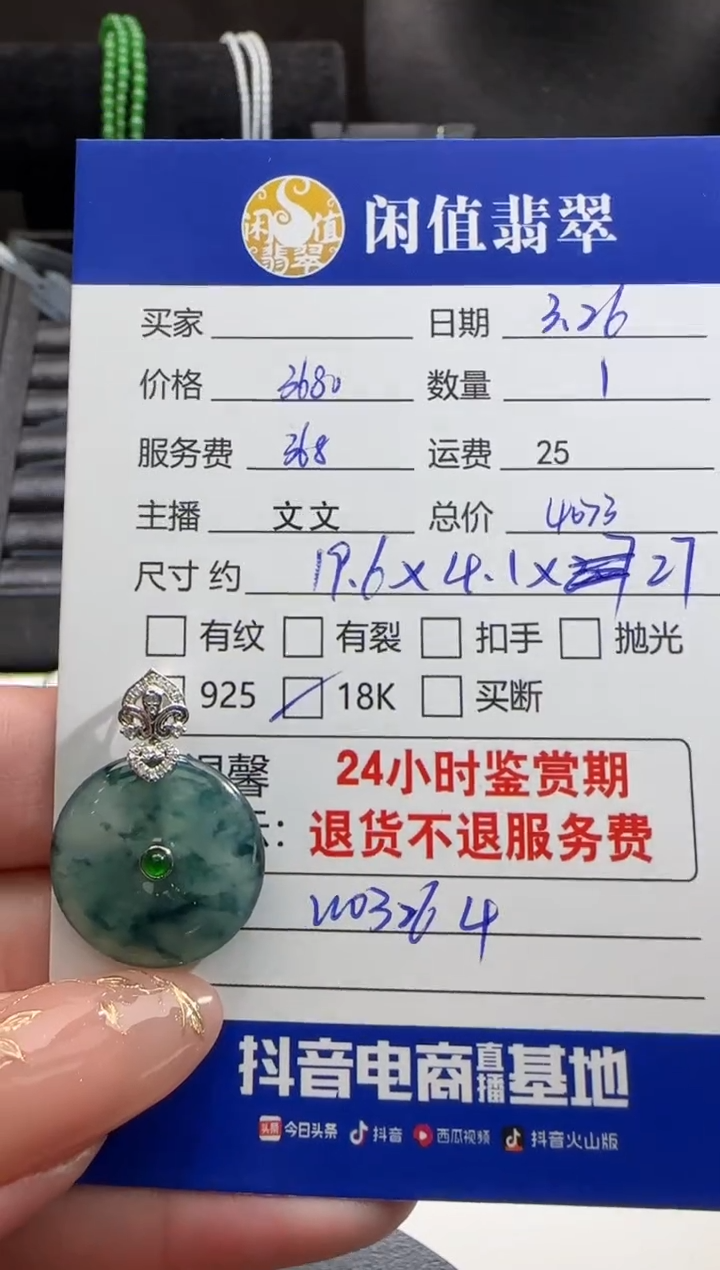 闲值翡翠 闲值翡翠
买家 日期 3.26
价格 3680 数量 1
服务费 368 运费 25
主播 文文 总价 4073
尺寸 约 19.6×4.1× 27
有纹 有裂 扣手 抛光
925 18K 买断
温馨 24小时鉴赏期
: 退货不退服务费
4
抖音电商直播基地
头条 今日头条 抖音 西瓜视频 抖音火山版